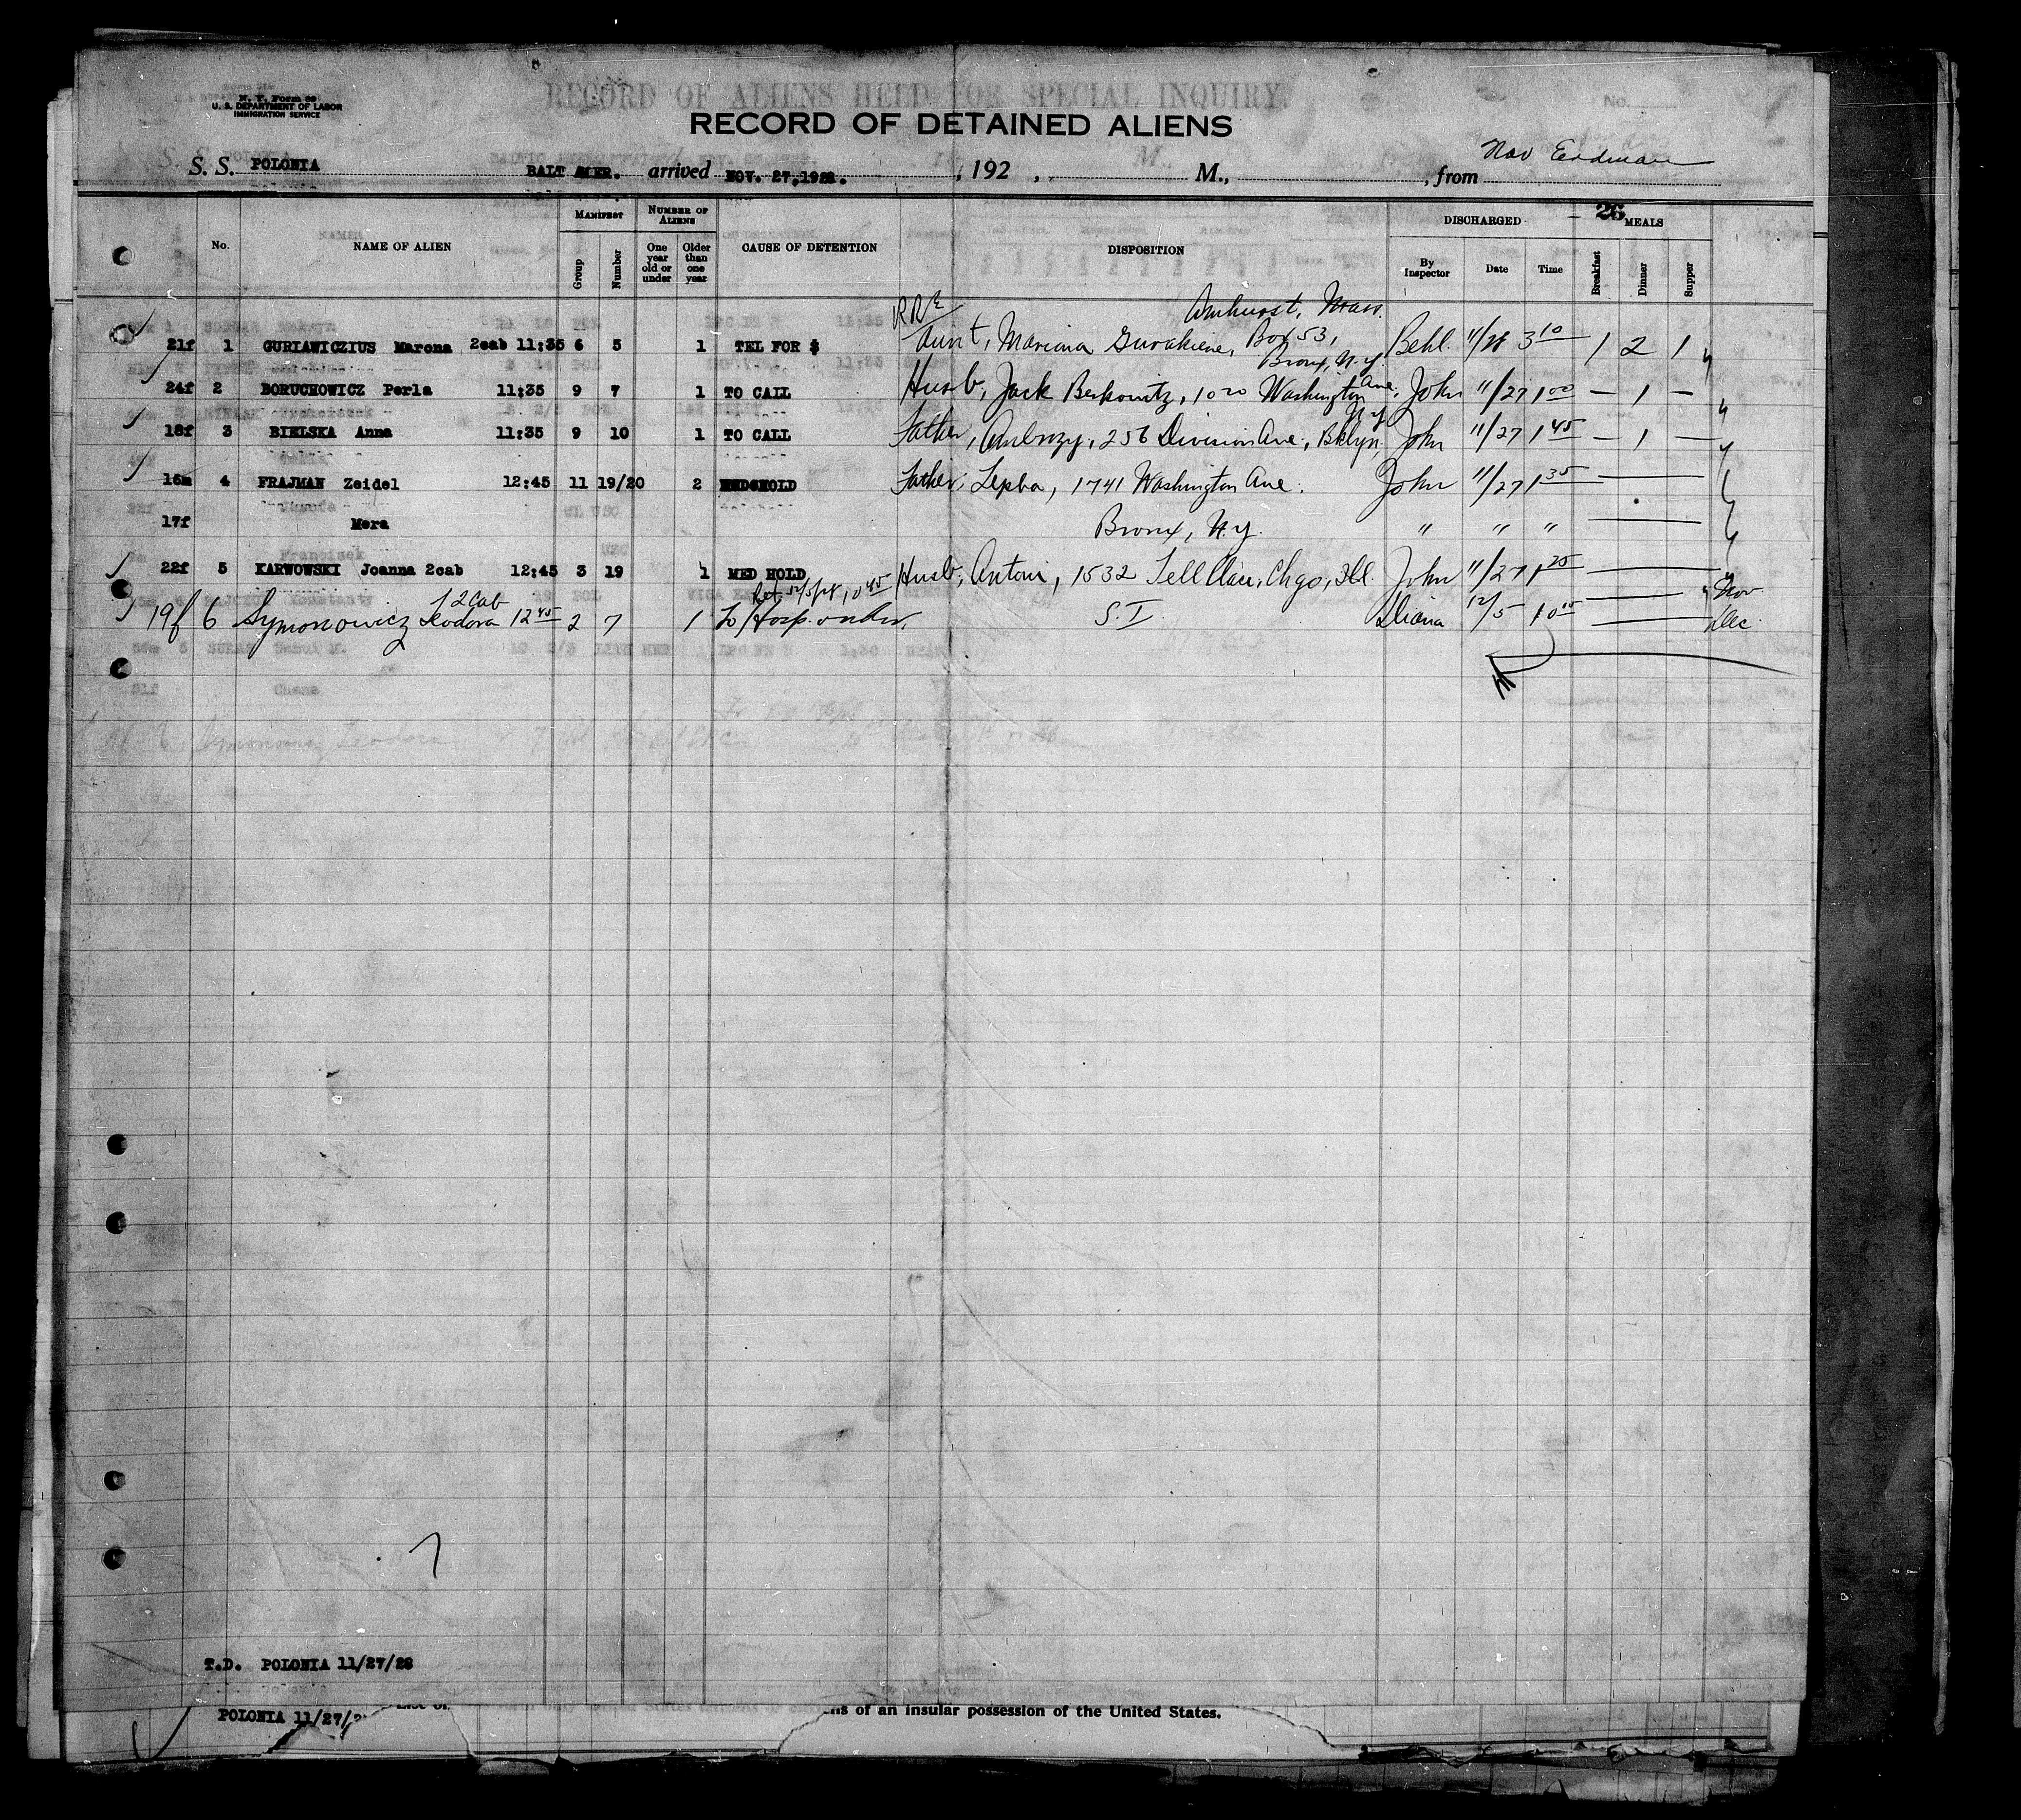 N. Y. Form 89
U. S. DEPARTMENT OF LABOR
IMMIGRATION SERVICE
RECORD OF ALIENS HELD FOR SPECIAL INQUIRY
No.
RECORD OF DETAINED ALIENS
S. S. POLONIA BALT AMER. arrived NOV. 27, 1928. , 192 , M., , from Nav Erdman
MANIFEST NUMBER OF ALIENS DISCHARGED 26 MEALS
No. NAME OF ALIEN Group Number One year old or under Older than one year CAUSE OF DETENTION DISPOSITION By Inspector Date Time Breakfast Dinner Supper
Amhurst, Mass.
21f 1 GURIAWICZIUS Marona 2cab 11:35 6 5 1 TEL FOR $ Aunt, Mariona Box 53, Behl. 11/28 3 10 1 2 1
Bronx, N.Y.
24f 2 BORUCHOWICZ Perla 11:35 9 7 1 TO CALL Husb, Jack Berkowitz, 1020 Washington Ave. John 11/27 1 00 — 1 —
N.Y.
18f 3 BIELSKA Anna 11:35 9 10 1 TO CALL Father, Ambrozy, 256 Division Ave., Bklyn, John 11/27 1 45 — 1 —
16m 4 FRAJMAN Zeidel 12:45 11 19/20 2 MED HOLD Father, 1741 Washington Ave. John 11/27 1 35
17f Mera Bronx, N.Y. " " "
22f 5 KARWOWSKI Joanna 2cab 12:45 3 19 1 MED HOLD Husb, Antoni, 1532 Tell Place, Chgo, Ill. John 11/27 1 25
Nov
2cab
19f 6 Symonowicz Teodora 12 45 2 7 1 To Hosp. S.I. 12/5 10 Dec.
T.D. POLONIA 11/27/28
POLONIA 11/27/
of an insular possession of the United States.